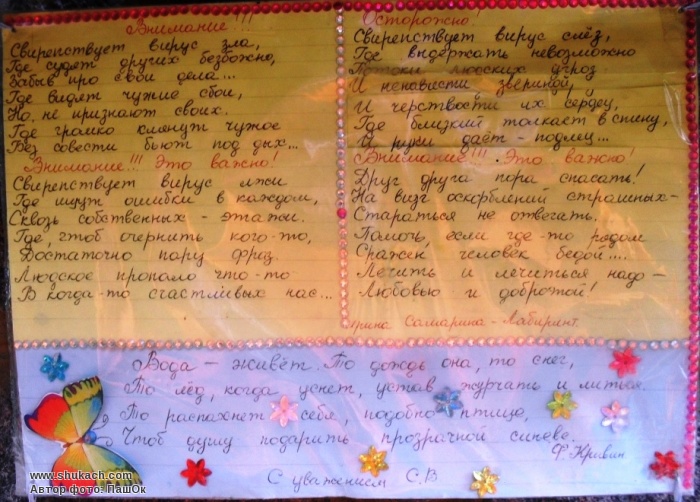 Внимание!!!
Свирепствует вирус зла,
Где судят других безбожно,
Забыв про свои дела...
Где видят чужие сбои,
Но, не признают своих.
Где громко клянут чужое
Без совести бьют под дых...
Внимание!!! Это важно!
Свирепствует вирус лжи
Где ищут ошибки в каждом,
Сквозь собственных - этажи.
Где, чтоб очернить кого-то,
Достаточно пару фраз.
Людское пропало что-то
В когда-то счастливых нас...
Осторожно!
Свирепствует вирус слёз,
Где видержать невозможно
Потоки людских угроз
И ненависти звериной,
И черствости их сердец,
Где близкий толкает в спину,
И руки даёт - подлец...
Внимание!!! Это важно!
Друг друга пора спасать!
На визг оскорблений страшных-
Стараться не отвечать.
Помочь, если где-то рядом
Сражен человек бедой....
Лечить и лечиться надо -
Любовью и добротой!
Ирина Самарина-Лабиринт.
Вода - живёт. То дождь она, то снег,
То лёд, когда уснет, устав журчать и литься.
То распахнет себя, подобно птице,
Чтоб душу подарить прозрачной синеве.
Ф. Кривин
С уважением С.В
www.shukach.com
Автор фото: ПашОк